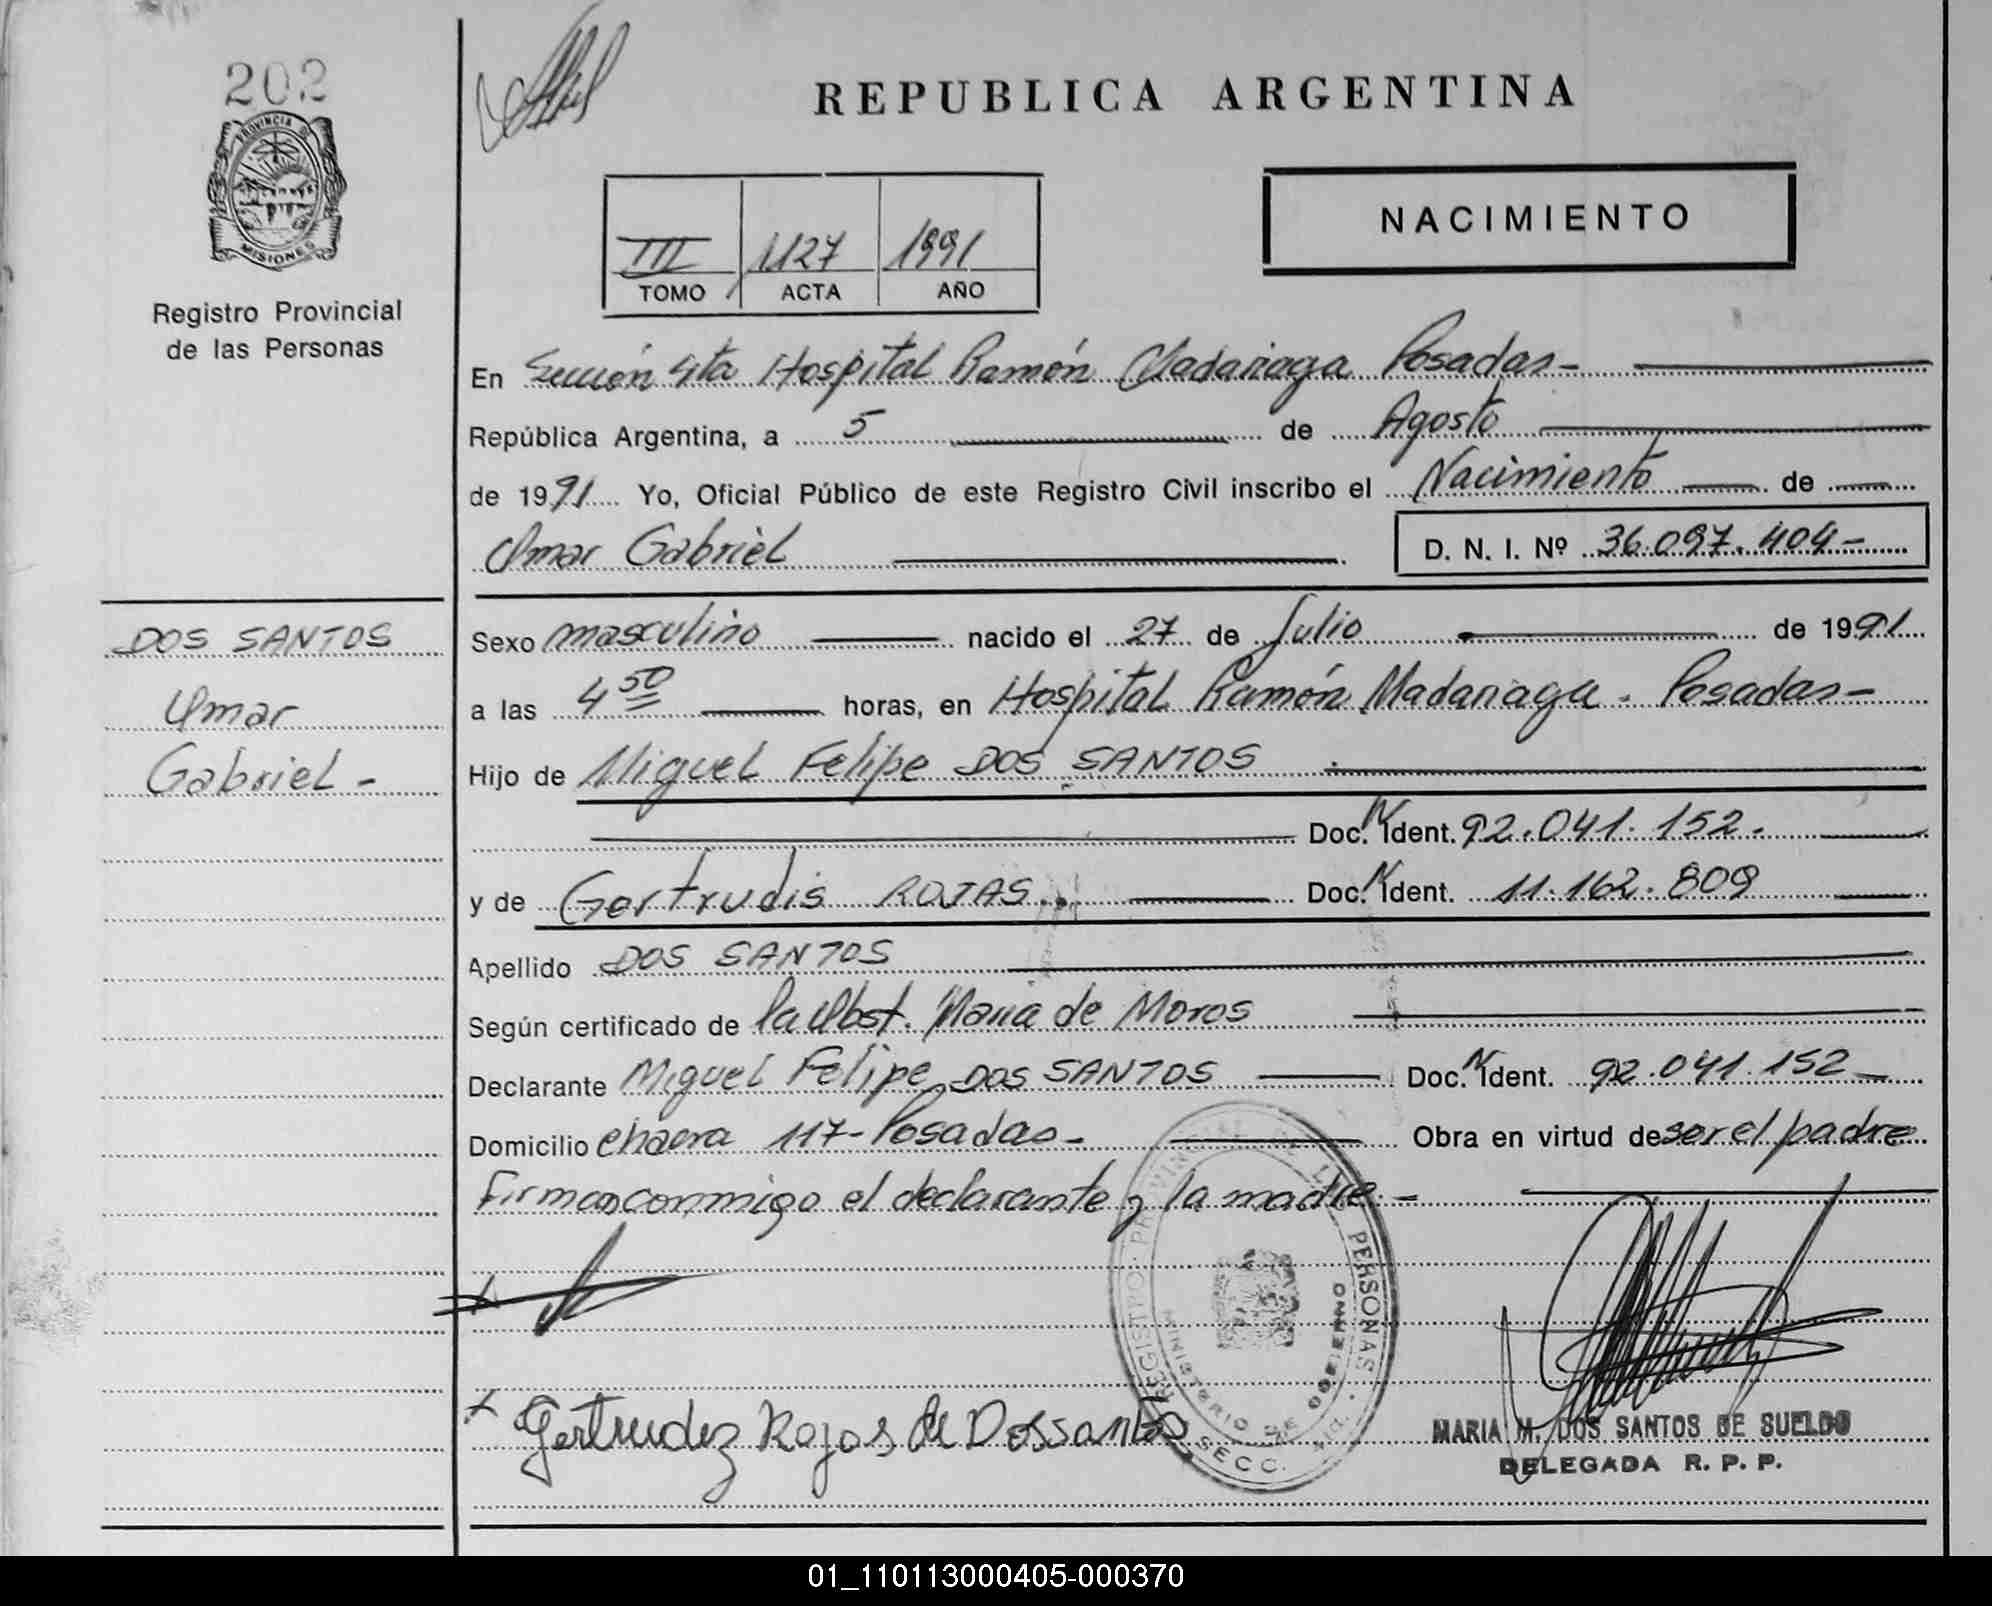 202
PROVINCIA DE
MISIONES
Registro Provincial
de las Personas
REPUBLICA ARGENTINA
NACIMIENTO
III 1127 1991
TOMO ACTA AÑO
En Sección 4ta Hospital Ramón Madariaga Posadas-
República Argentina, a 5 de Agosto
de 1991 Yo, Oficial Público de este Registro Civil inscribo el Nacimiento de
Omar Gabriel D. N. I. Nº 36.097.404-
DOS SANTOS
Omar
Gabriel-
Sexo masculino nacido el 27 de Julio de 1991
a las 4 50 horas, en Hospital Ramón Madariaga. Posadas-
Hijo de Miguel Felipe DOS SANTOS
Doc. N Ident. 92.041.152.
y de Gertrudis ROJAS. Doc. N Ident. 11.162.809
Apellido DOS SANTOS
Según certificado de la Obst. Maria de Moros
Declarante Miguel Felipe DOS SANTOS Doc. N Ident. 92.041.152
Domicilio chacra 117-Posadas- Obra en virtud de ser el padre
Firman conmigo el declarante y la madre.-
REGISTRO PROVINCIAL DE LAS PERSONAS
MINISTERIO DE GOBIERNO
SECC.
x Gertrudez Rojas de Dossantos
MARIA M. DOS SANTOS DE SUELDO
DELEGADA R. P. P.
01_110113000405-000370